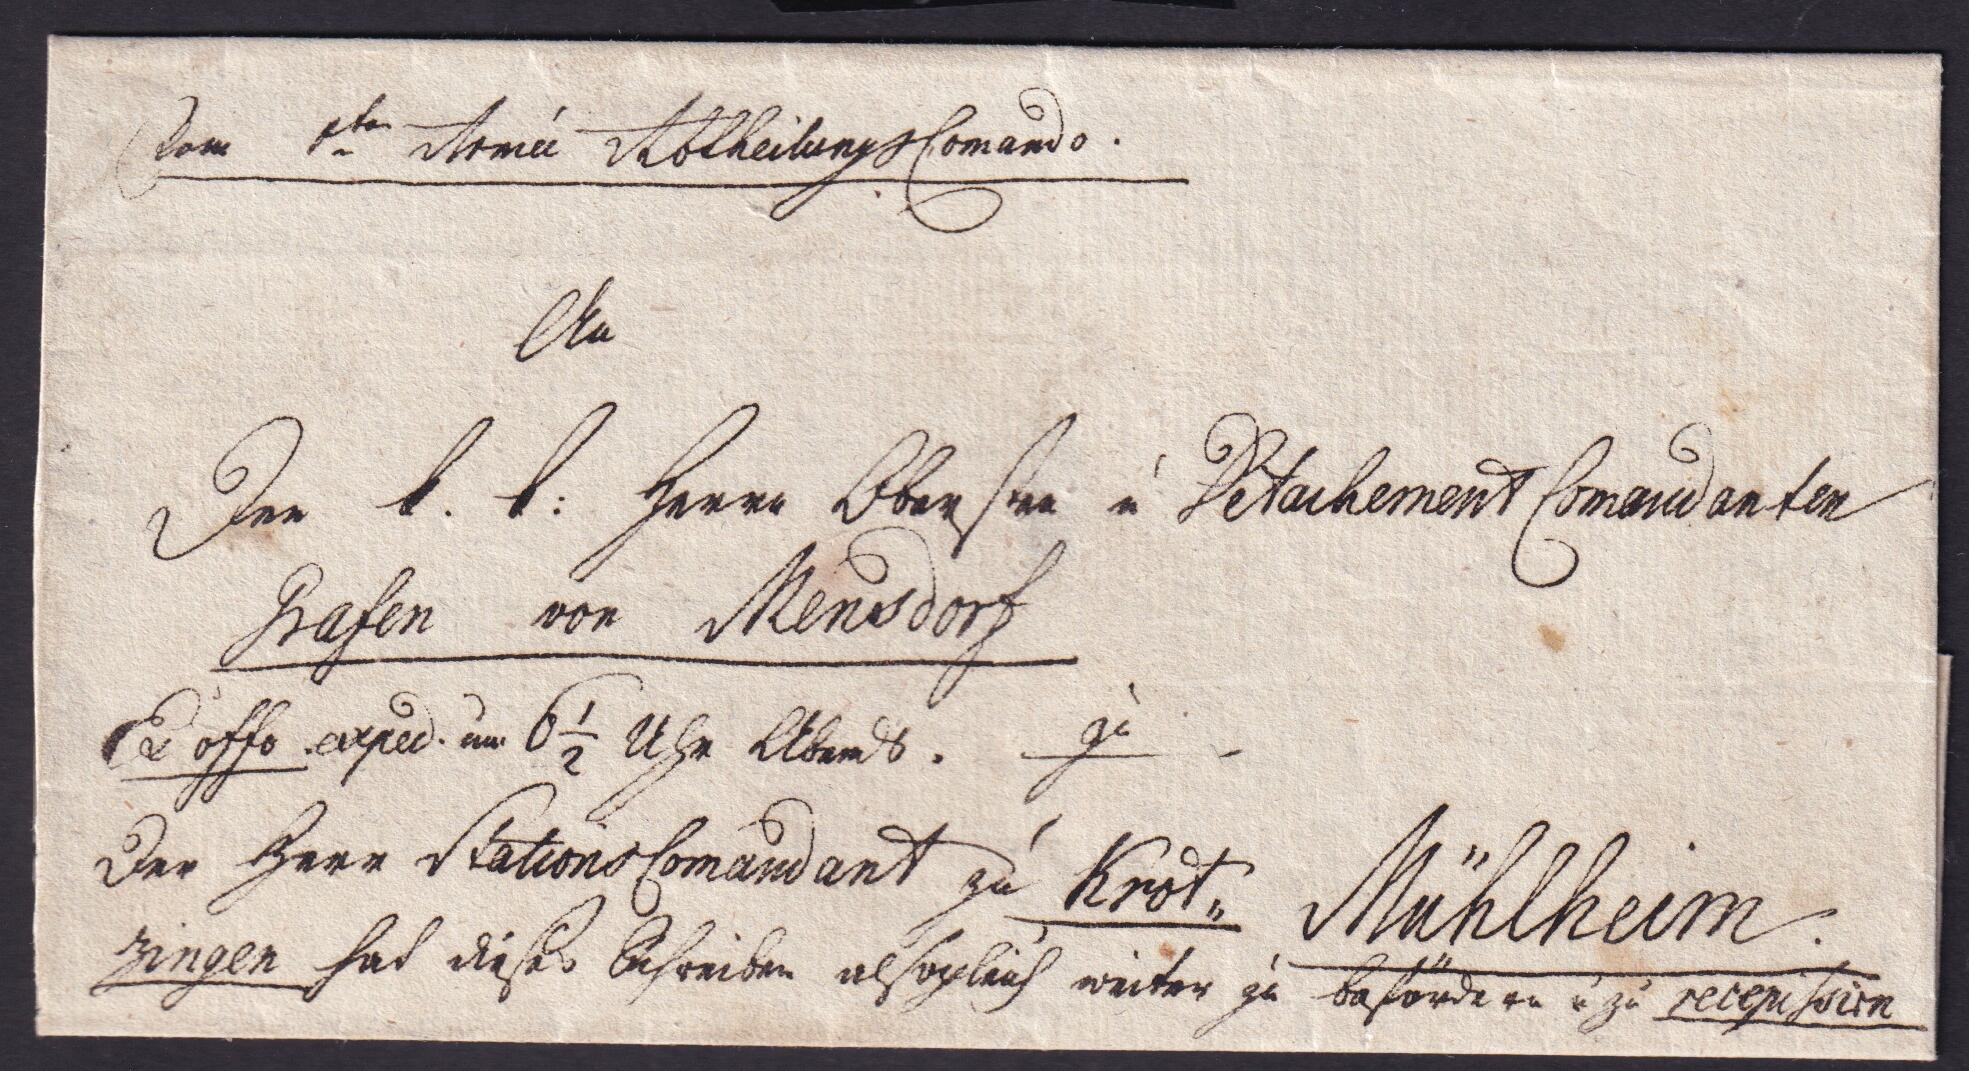 Vom 1ten Armée Abtheilungs Comando.
An
Den k. k: Herrn Obersten u Detachement Comandanten
Grafen von Mensdorf
Ex offo exped. um 6 1/2 Uhr Abends. zu
Der Herr Stations Comandant zu Krot„
Mühlheim.
zingen hat dieses Schreiben alsogleich weiter zu befördern u zu recepissirn